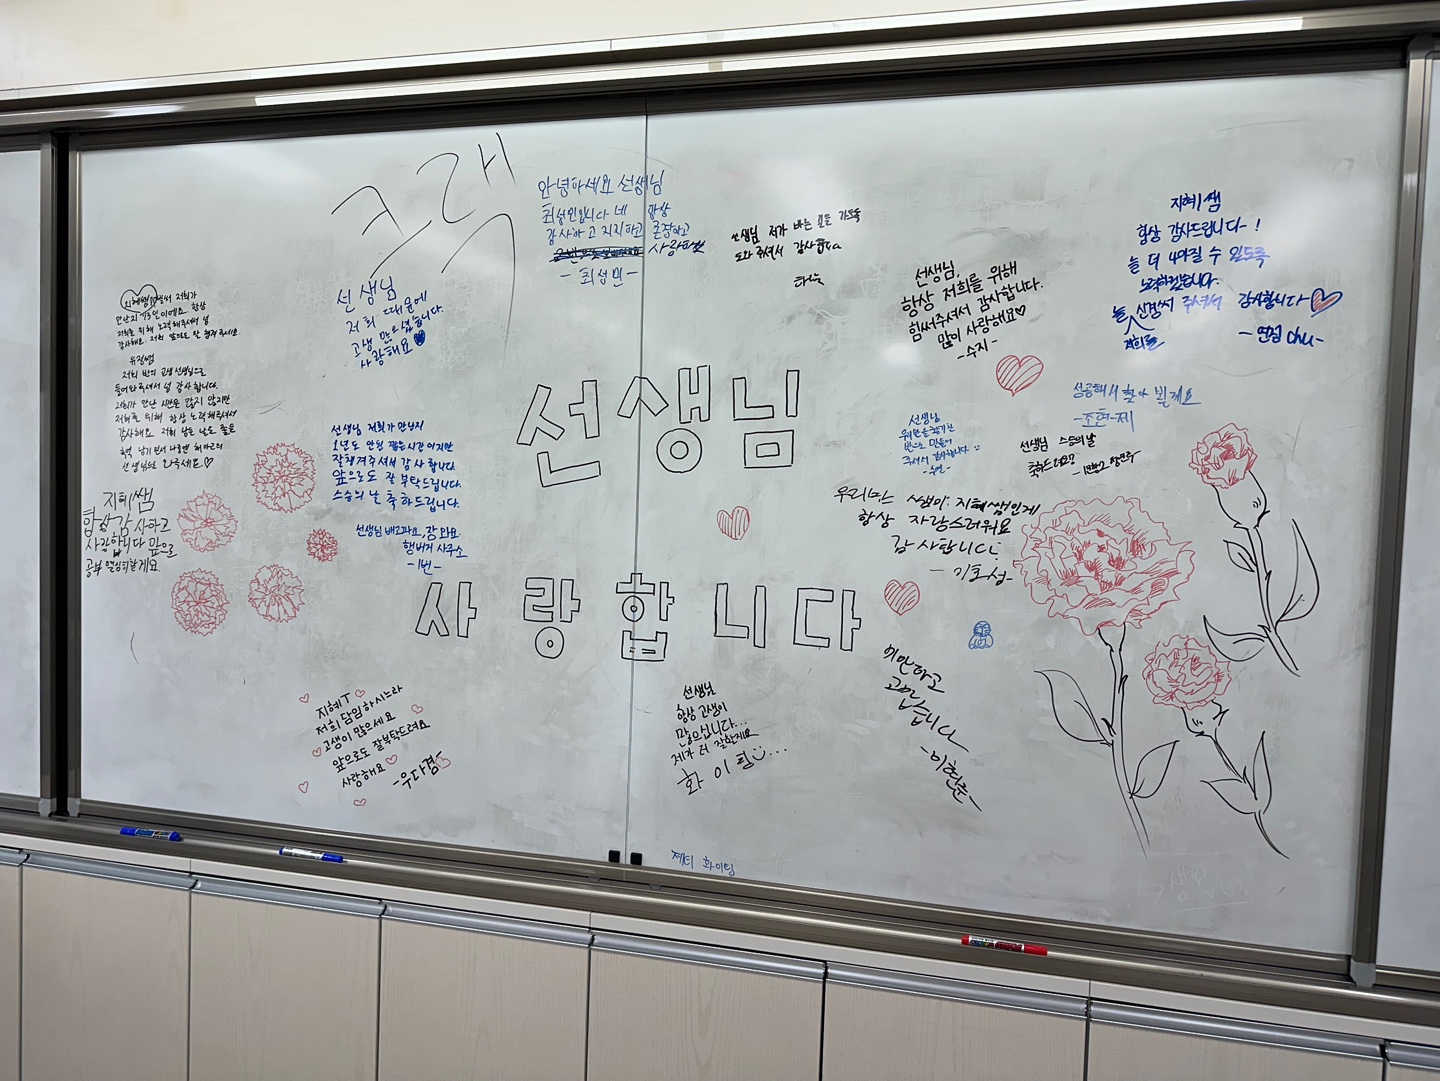 안녕하세요 선생님
최성민입니다 네 항상
감사하고 지지하고 존경하고
사랑해요
- 최성민 -
선생님 제가 바는 모를
도와주셔서 감사합니다
지혜쌤
항상 감사드립니다~!
늘 더 나아질 수 있도록
노력하겠습니다.
늘 저희를 신경써 주셔서 감사합니다
- 연정 chu -
선생님,
항상 저희를 위해
힘써주셔서 감사합니다.
많이 사랑해요♡
- 수지 -
선생님
저희 때문에
고생 많으셨습니다.
사랑해요
만난지
저희를 위해 노력해주셔서 넘
감사해요
유정쌤
저희 반의 교생선생님으로
들어와주셔서 넘 감사합니다.
저희가 만난 시간은 많지 않지만
저희를 위해 항상 노력해주셔서
감사해요 저희 남은 날도
선생님으로 와주세요♡
선생님
사랑합니다
선생님 저희가 만난지
1년도 안된 짧은시간이지만
잘챙겨주셔서 감사합니다.
앞으로도 잘 부탁드립니다.
스승의 날 축하드립니다.
선생님 배고파요,
햄버거 사주소
- 1번 -
성공해서 찾아 뵐게요
- 조현-제
선생님 스승의날
축하드려요?
선생님
만들어
주셔서 감사합니다
지혜쌤
항상 감사하고
사랑합니다 앞으로
공부 열심히할게요
우리반 쌤이 지혜쌤인게
항상 자랑스러워요
감사합니다.
- 기호성 -
미안하고
고맙습니다
- 이현준 -
지혜T
저희 담임하시느라
고생이 많으세요
앞으로도 잘부탁드려요
사랑해요
- 우다겸
선생님
항상 고생이
많으십니다...
제가 더 잘할게요
화이팅 ...
제티 화이팅